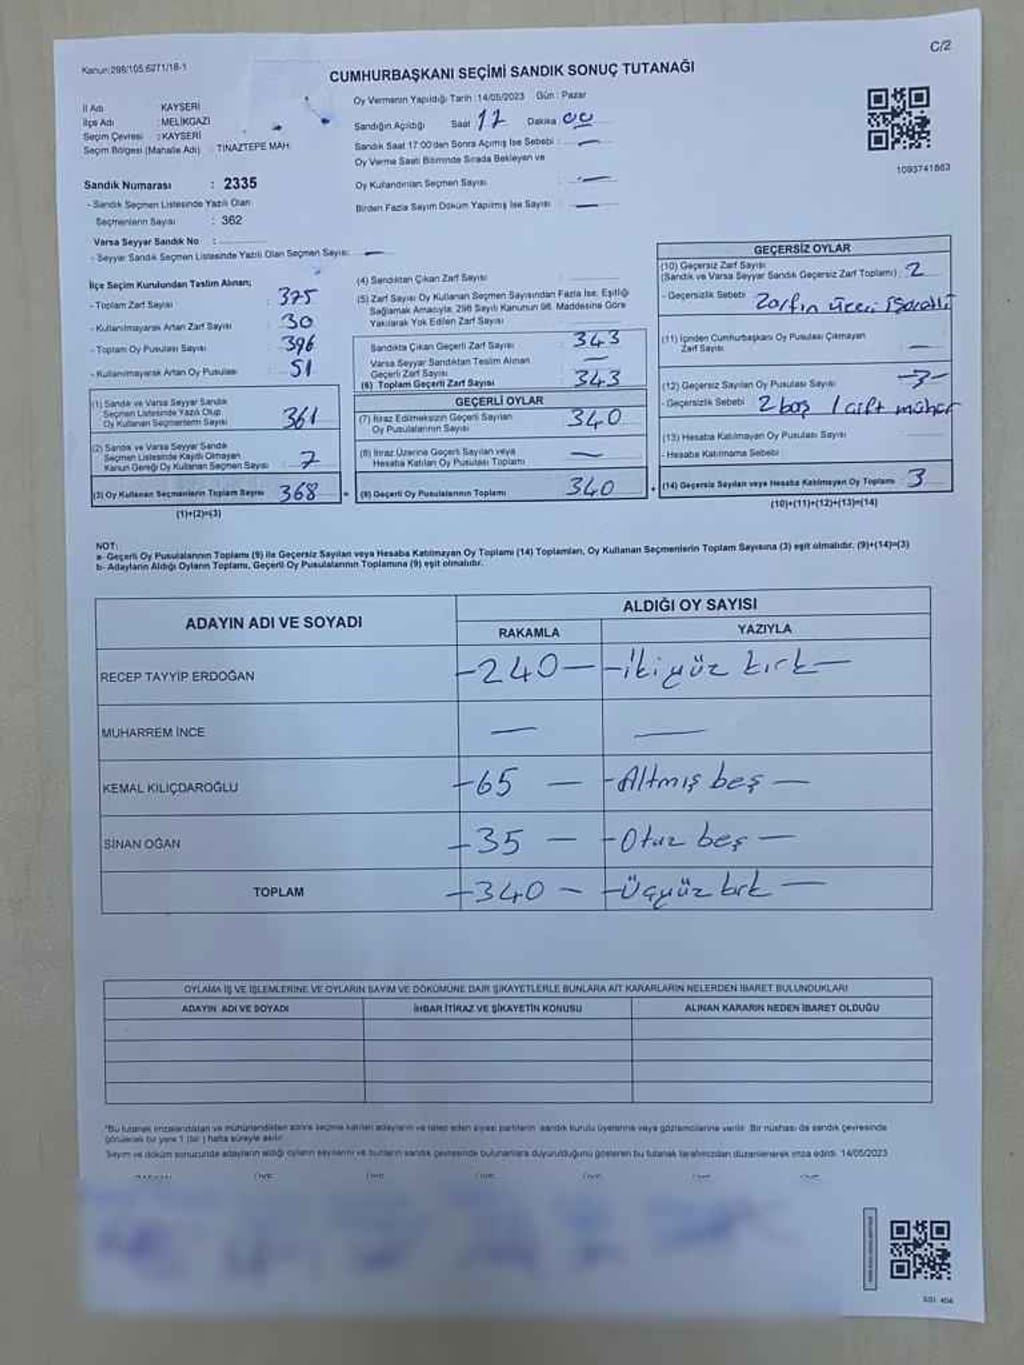 C/2
Kanun:298/105,6271/18-1
CUMHURBAŞKANI SEÇİMİ SANDIK SONUÇ TUTANAĞI
İl Adı : KAYSERİ
İlçe Adı : MELİKGAZİ
Seçim Çevresi : KAYSERİ
Seçim Bölgesi (Mahalle Adı) : TINAZTEPE MAH.
Sandık Numarası : 2335
- Sandık Seçmen Listesinde Yazılı Olan
Seçmenlerin Sayısı : 362
Varsa Seyyar Sandık No :
- Seyyar Sandık Seçmen Listesinde Yazılı Olan Seçmen Sayısı: —
Oy Vermenin Yapıldığı Tarih :14/05/2023 Gün : Pazar
Sandığın Açıldığı Saat 17 Dakika 00
Sandık Saat 17:00'den Sonra Açımış İse Sebebi : —
Oy Verme Saati Bitiminde Sırada Bekleyen ve
Oy Kullandırılan Seçmen Sayısı : —
Birden Fazla Sayım Döküm Yapılmış İse Sayısı : —
1093741863
İlçe Seçim Kurulundan Teslim Alınan;
- Toplam Zarf Sayısı : 375
- Kullanılmayarak Artan Zarf Sayısı : 30
- Toplam Oy Pusulası Sayısı : 396
- Kullanılmayarak Artan Oy Pusulası : 51
(1) Sandık ve Varsa Seyyar Sandık
Seçmen Listesinde Yazılı Olup
Oy Kullanan Seçmenlerin Sayısı 361
(2) Sandık ve Varsa Seyyar Sandık
Seçmen Listesinde Kayıtlı Olmayan
Kanun Gereği Oy Kullanan Seçmen Sayısı 7
(3) Oy Kullanan Seçmenlerin Toplam Sayısı 368
(1)+(2)=(3)
(4) Sandıktan Çıkan Zarf Sayısı :
(5) Zarf Sayısı Oy Kullanan Seçmen Sayısından Fazla İse, Eşitliği
Sağlamak Amacıyla, 298 Sayılı Kanunun 98. Maddesine Göre
Yakılarak Yok Edilen Zarf Sayısı
Sandıkta Çıkan Geçerli Zarf Sayısı 343
Varsa Seyyar Sandıktan Teslim Alınan
Geçerli Zarf Sayısı —
(6) Toplam Geçerli Zarf Sayısı 343
GEÇERLİ OYLAR
(7) İtiraz Edilmeksizin Geçerli Sayılan
Oy Pusulalarının Sayısı 340
(8) İtiraz Üzerine Geçerli Sayılan veya
Hesaba Katılan Oy Pusulası Toplamı —
(9) Geçerli Oy Pusulalarının Toplamı 340
GEÇERSİZ OYLAR
(10) Geçersiz Zarf Sayısı
(Sandık ve Varsa Seyyar Sandık Geçersiz Zarf Toplamı) : 2
- Geçersizlik Sebebi Zarfın üzeri işaretli
(11) İçinden Cumhurbaşkanı Oy Pusulası Çıkmayan
Zarf Sayısı —
(12) Geçersiz Sayılan Oy Pusulası Sayısı -3-
- Geçersizlik Sebebi 2 boş 1 çift mühür
(13) Hesaba Katılmayan Oy Pusulası Sayısı
- Hesaba Katılmama Sebebi
(14) Geçersiz Sayılan veya Hesaba Katılmayan Oy Toplamı 3
(10)+(11)+(12)+(13)=(14)
NOT:
a- Geçerli Oy Pusulalarının Toplamı (9) ile Geçersiz Sayılan veya Hesaba Katılmayan Oy Toplamı (14) Toplamları, Oy Kullanan Seçmenlerin Toplam Sayısına (3) eşit olmalıdır. (9)+(14)=(3)
b- Adayların Aldığı Oyların Toplamı, Geçerli Oy Pusulalarının Toplamına (9) eşit olmalıdır.
ADAYIN ADI VE SOYADI ALDIĞI OY SAYISI
RAKAMLA YAZIYLA
RECEP TAYYİP ERDOĞAN -240- -ikiyüz kırk-
MUHARREM İNCE — —
KEMAL KILIÇDAROĞLU -65- -Altmış beş-
SİNAN OĞAN -35- -Otuz beş-
TOPLAM -340- -Üçyüz kırk-
OYLAMA İŞ VE İŞLEMLERİNE VE OYLARIN SAYIM VE DÖKÜMÜNE DAİR ŞİKAYETLERLE BUNLARA AİT KARARLARIN NELERDEN İBARET BULUNDUKLARI
ADAYIN ADI VE SOYADI İHBAR İTİRAZ VE ŞİKAYETİN KONUSU ALINAN KARARIN NEDEN İBARET OLDUĞU
*Bu tutanak imzalandıktan ve mühürlendikten sonra seçime katılan adayların ve talep eden siyasi partilerin sandık kurulu üyelerine veya gözlemcilerine verilir. Bir nüshası da sandık çevresinde
görülecek bir yere 1 (bir) hafta süreyle asılır.
Sayım ve döküm sonucunda adayların aldığı oyların sayılarını ve bunların sandık çevresinde bulunanlara duyurulduğunu gösteren bu tutanak tarafımızdan düzenlenerek imza edildi. 14/05/2023